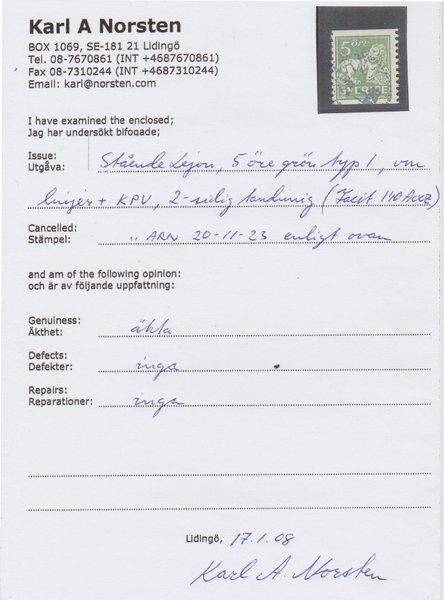 Karl A Norsten
BOX 1069, SE-181 21 Lidingö
Tel. 08-7670861 (INT +4687670861)
Fax 08-7310244 (INT +4687310244)
Email: karl@norsten.com
5 ÖRE
SVERIGE
I have examined the enclosed;
Jag har undersökt bifogade;
Issue:
Utgåva: Stående Lejon, 5 öre grön typ 1, vm
linjer + KPV, 2-sidig tandning (Facit 140Acxz)
Cancelled:
Stämpel: " ARN 20-11-23 enligt ovan
and am of the following opinion:
och är av följande uppfattning:
Genuiness:
Äkthet: äkta
Defects:
Defekter: inga
Repairs:
Reparationer: inga
Lidingö, 17.1.08
Karl A. Norsten